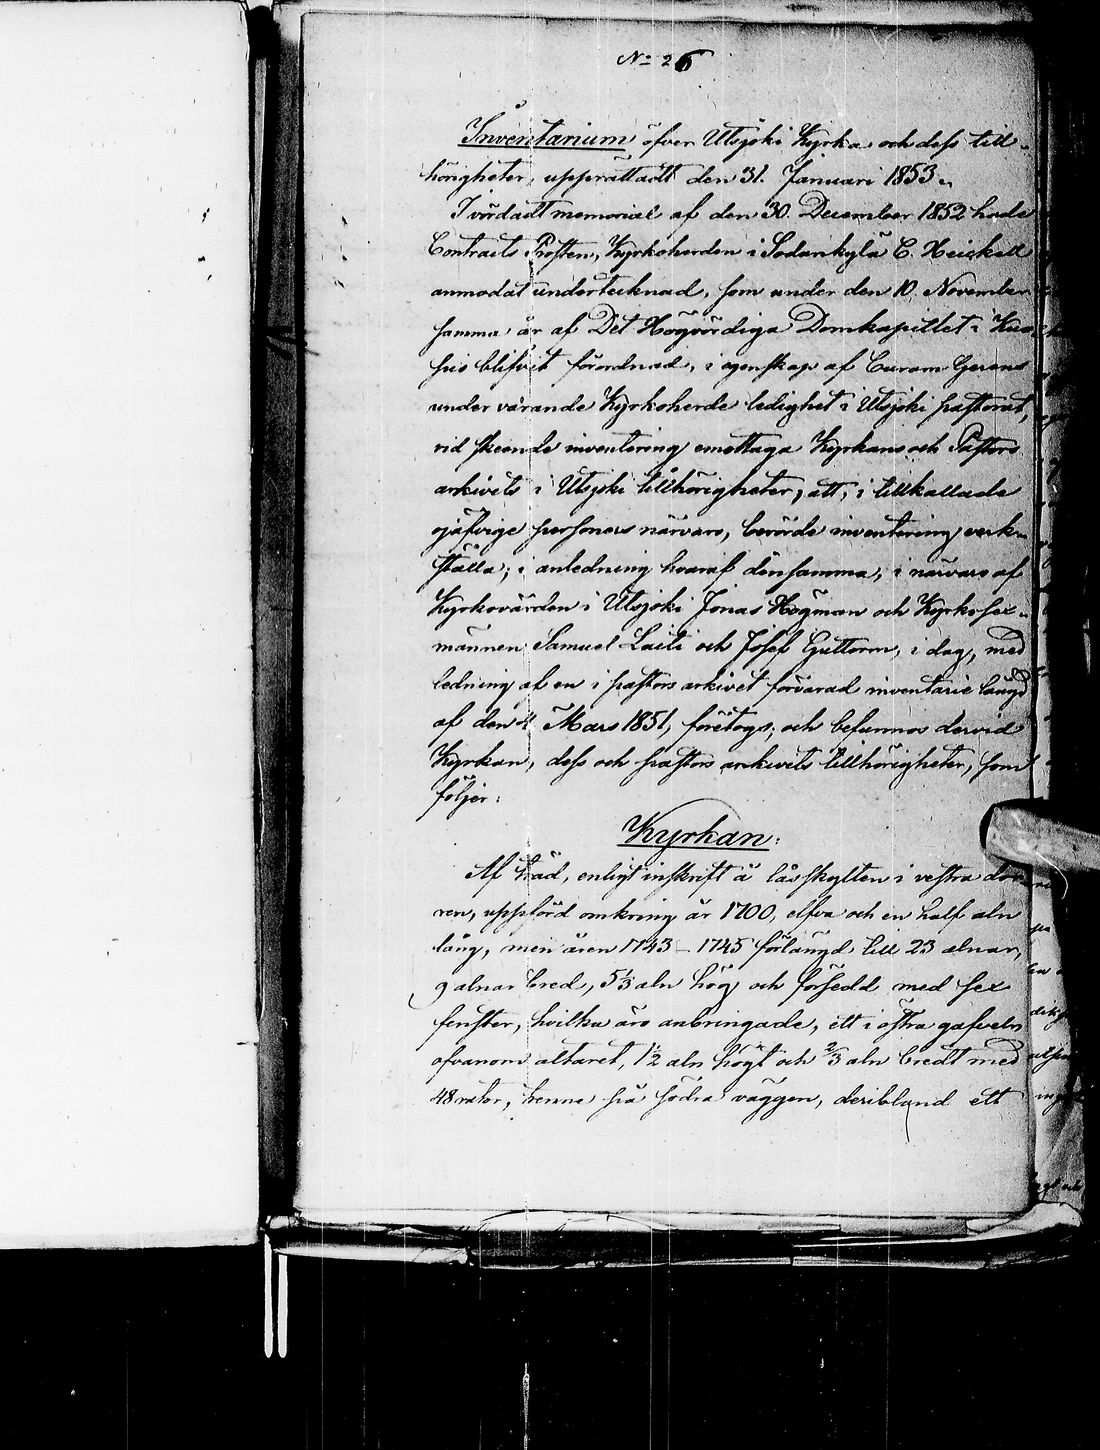 No 26
Inventarium öfver Utsjoki Kyrka och dess till-
hörigheter, upprättadt den 31. Januari 1853.
I vördadt memorial af den 30. December 1852 hade
Contracts Prosten, Kyrkoherden i Sodankylä C. Heickell
anmodat undertecknad, som under den 10. November
samma år af Det Högvördiga Domkapitlet i Kuo-
pio blifvit förordnad, i egenskap af Curam Gerens
under varande Kyrkoherde ledighet i Utsjoki pastorat,
vid skeende inventering emottaga Kyrkans och Pastors
arkivets i Utsjoki tillhörigheter, att, i tillkallade
ojäfvige personers närvaro, berörde inventering verk-
ställa; i anledning hvaraf densamma, i närvaro af
Kyrkovärden i Utsjoki Jonas Högman och Kyrko sex-
männen Samuel Laiti och Josef Guttorm, i dag, med
ledning af en i pastors arkivet förvarad inventarie längd
af den 4 Mars 1851, företogs; och befunnos dervid
Kyrkan, dess och pastors arkivets tillhörigheter, som
följer:
Kyrkan:
Af träd, enligt inskrift å låsskylten i vestra dör-
ren, uppförd omkring år 1700, elfva och en half aln
lång, men åren 1743-1745 förlängd till 23 alnar,
9 alnar bred, 5 1/3 aln hög och försedd med sex
fenster, hvilka äro anbringade, ett i östra gafveln
ofvanom altaret, 1 1/2 aln högt och 2/3 aln bredt med
48 rutor, trenne på södra väggen, deribland ett